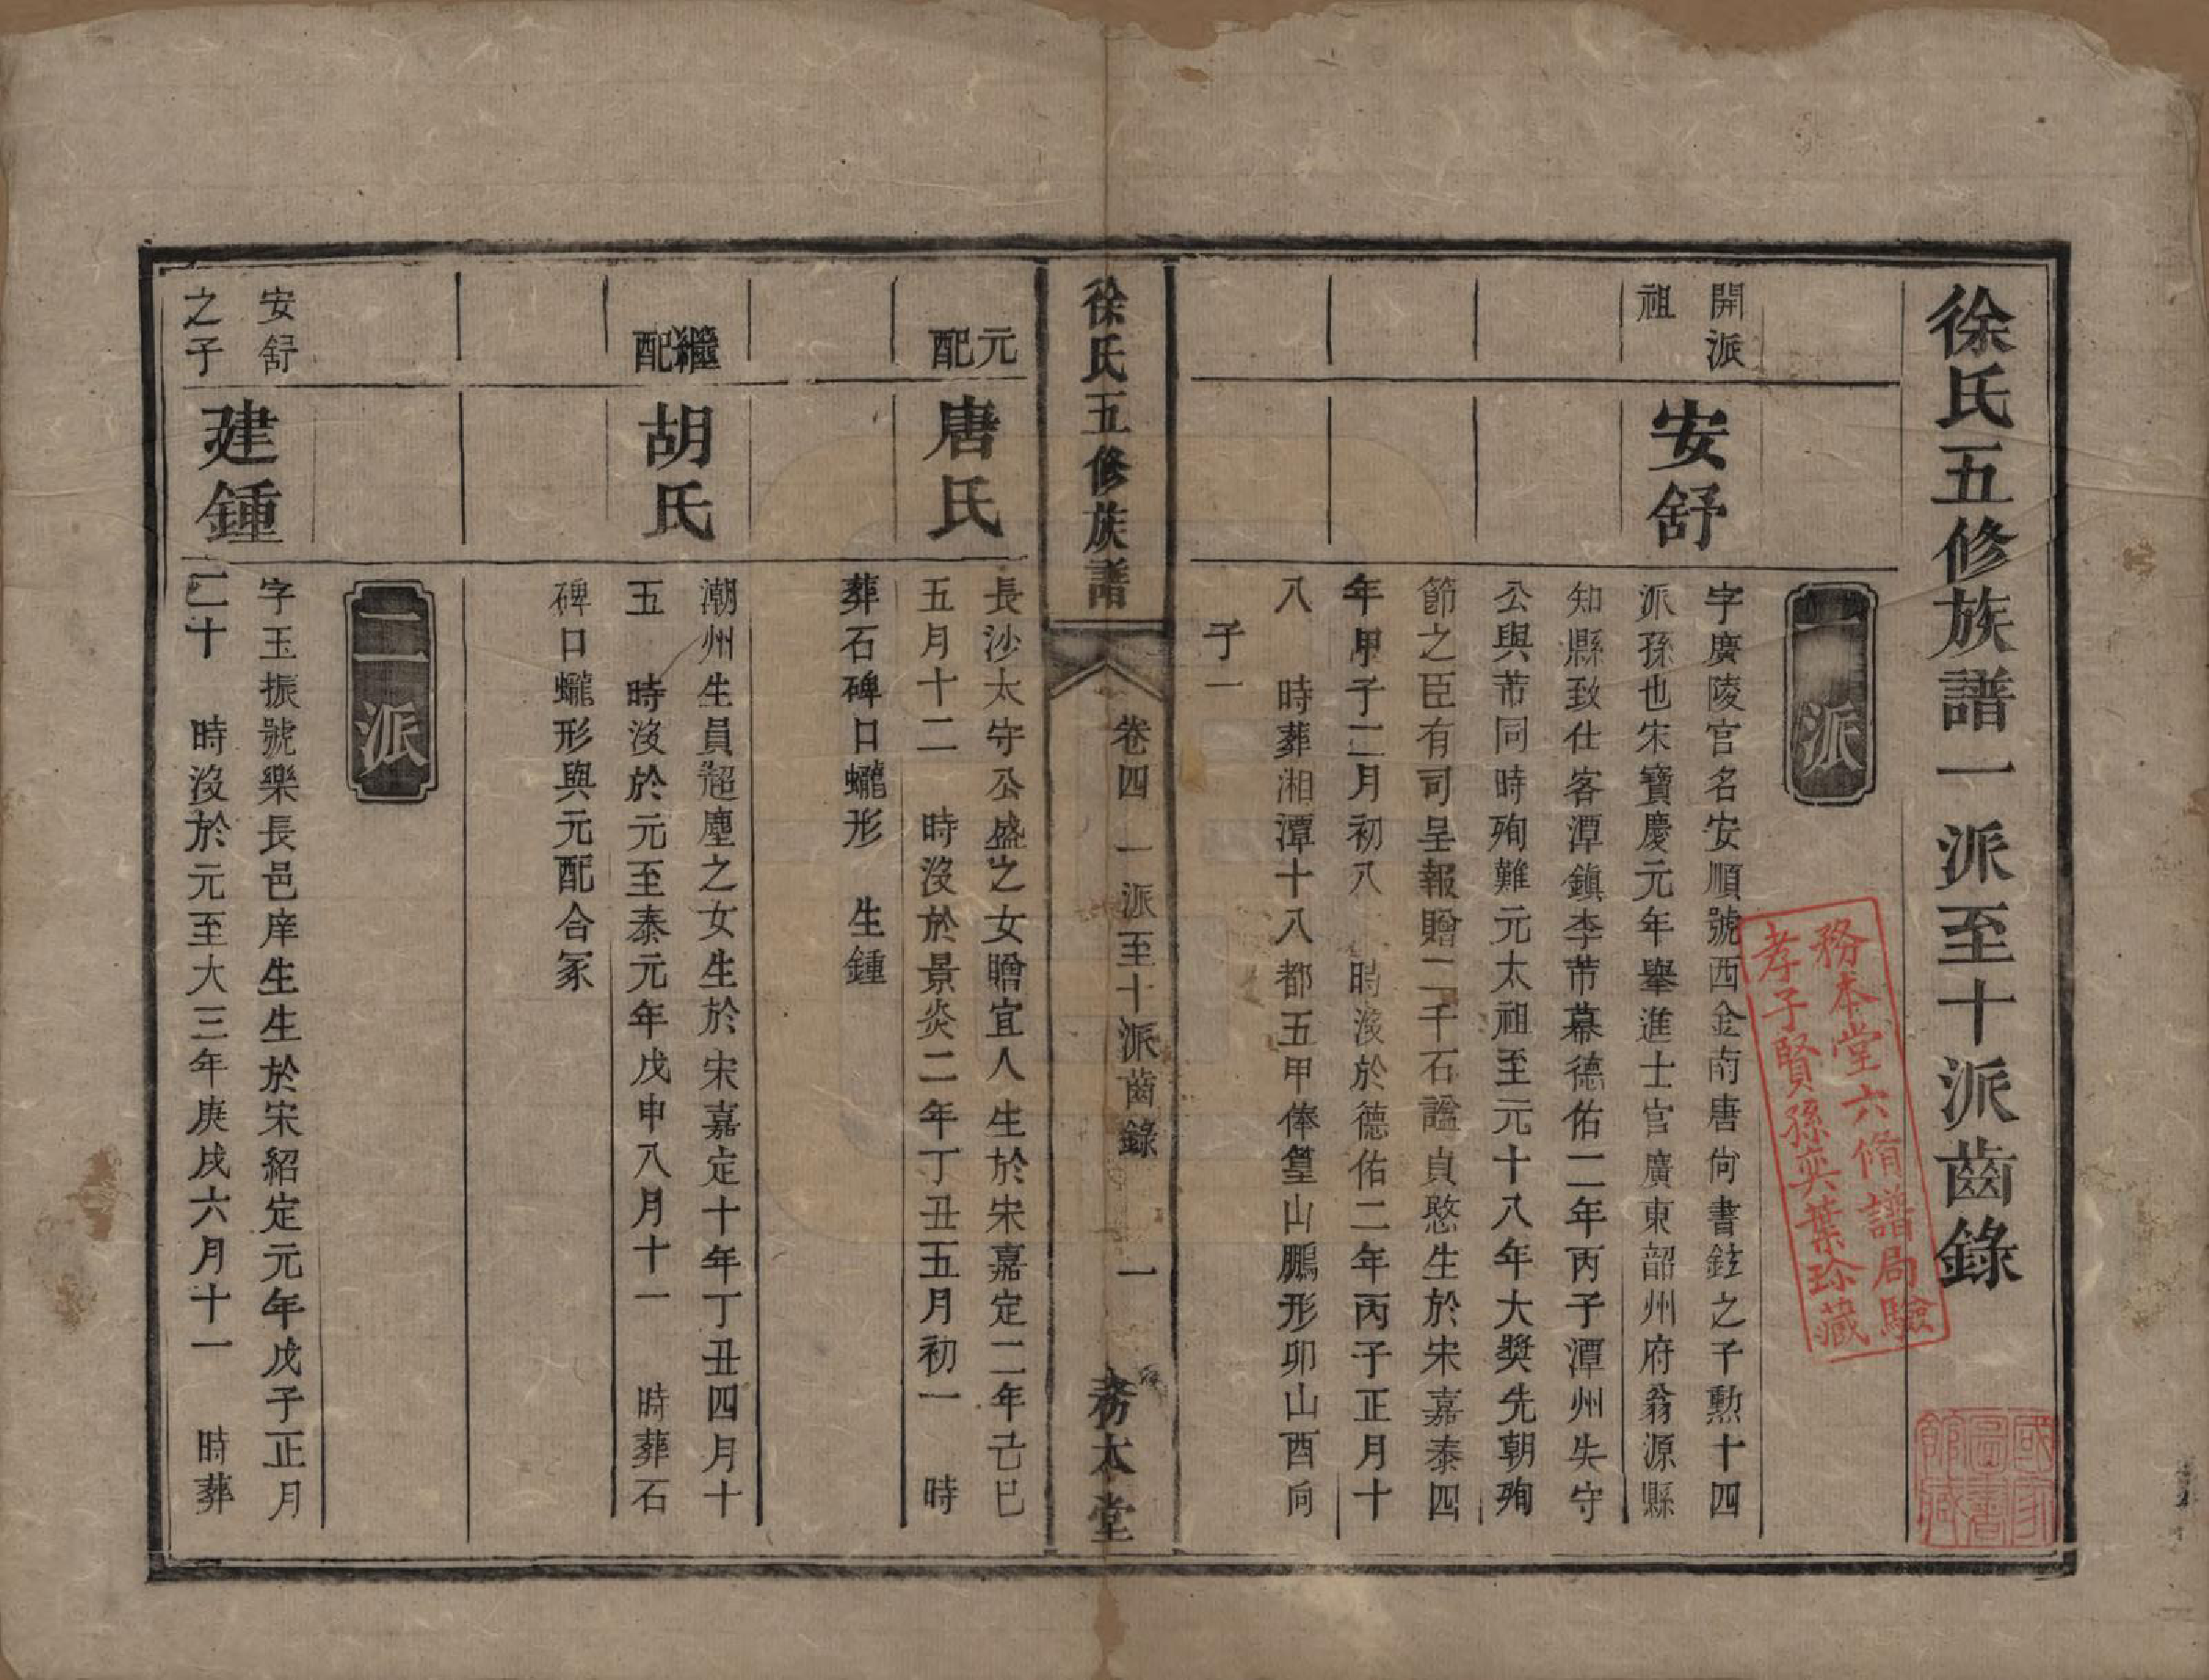 徐氏五修族譜一派至十派齒錄
務本堂六脩譜局驗
孝子賢孫奕葉珍藏
國家圖書館藏
一派
開派
祖
安舒
字廣陵官名安順號西金南唐尙書鉉之子勲十四
派孫也宋寶慶元年舉進士官廣東韶州府翁源縣
知縣致仕客潭鎮李芾幕德佑二年丙子潭州失守
公與芾同時殉難元太祖至元十八年大奬先朝殉
節之臣有司呈報贈二千石諡貞愍生於宋嘉泰四
年甲子二月初八 時沒於德佑二年丙子正月十
八 時葬湘潭十八都五甲俸篁山鵬形卯山酉向
子一
徐氏五修族譜
卷四 一派至十派齒錄 一
務本堂
元
配
唐氏
長沙太守公盛之女贈宜人生於宋嘉定二年己巳
五月十二 時沒於景炎二年丁丑五月初一 時
葬石碑口蠬形 生鍾
繼
配
胡氏
潮州生員超塵之女生於宋嘉定十年丁丑四月十
五 時沒於元至泰元年戊申八月十一 時葬石
碑口蠬形與元配合冢
二派
安舒
之子
建鍾
字玉振號樂長邑庠生生於宋紹定元年戊子正月
二十 時沒於元至大三年庚戌六月十一 時葬